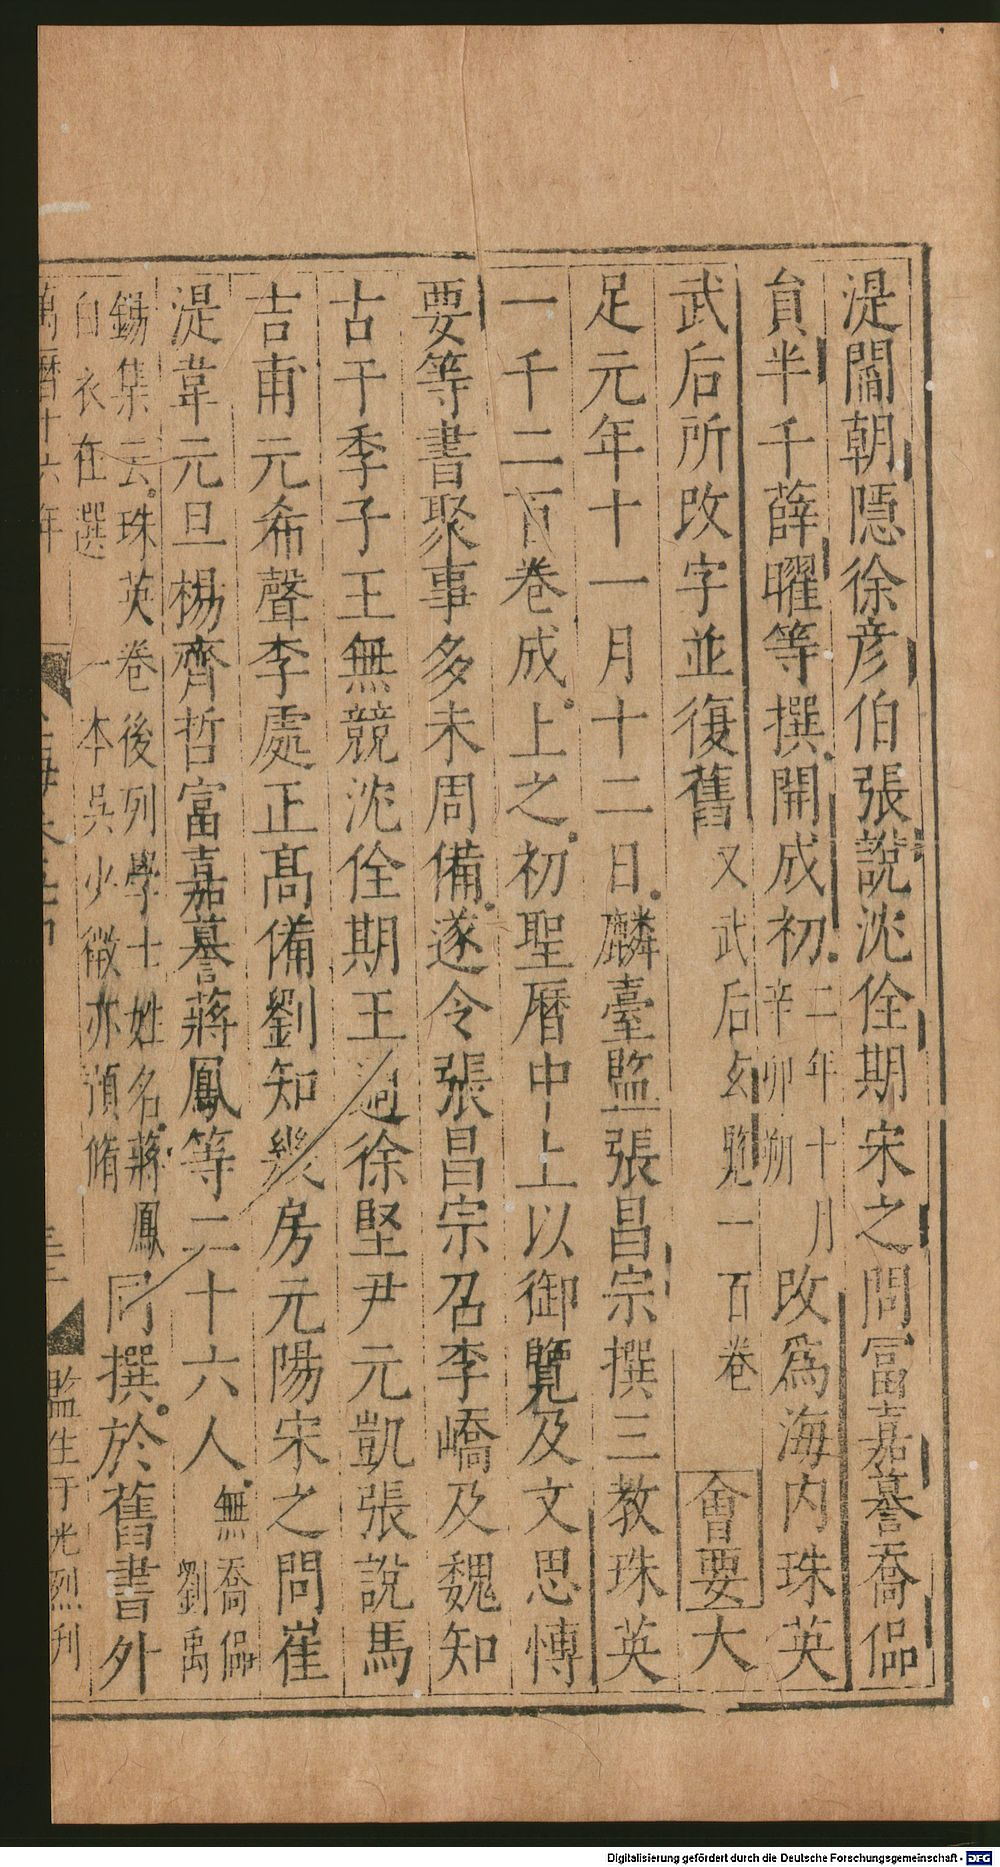 湜閻朝隱徐彦伯張說沈佺期宋之問富嘉謩喬偘
貟半千薛曜等撰開成初二年十月辛卯朔改爲海内珠英
武后所改字並復舊又武后玄覽一百卷會要大
足元年十一月十二日麟臺監張昌宗撰三教珠英
一千二百卷成上之初聖曆中上以御覽及文思愽
要等書聚事多未周備遂令張昌宗召李嶠及魏知
古于季子王無競沈佺期王適徐堅尹元凱張說馬
吉甫元希聲李處正髙備劉知幾房元陽宋之問崔
湜韋元旦楊齊哲富嘉謩蔣鳳等二十六人無喬偘劉禹
錫集云珠英卷後列學士姓名蔣鳳白衣在選一本吳少微亦預脩同撰於舊書外
萬曆十六年
監生于光烈刋
Digitalisierung gefördert durch die Deutsche Forschungsgemeinschaft - DFG